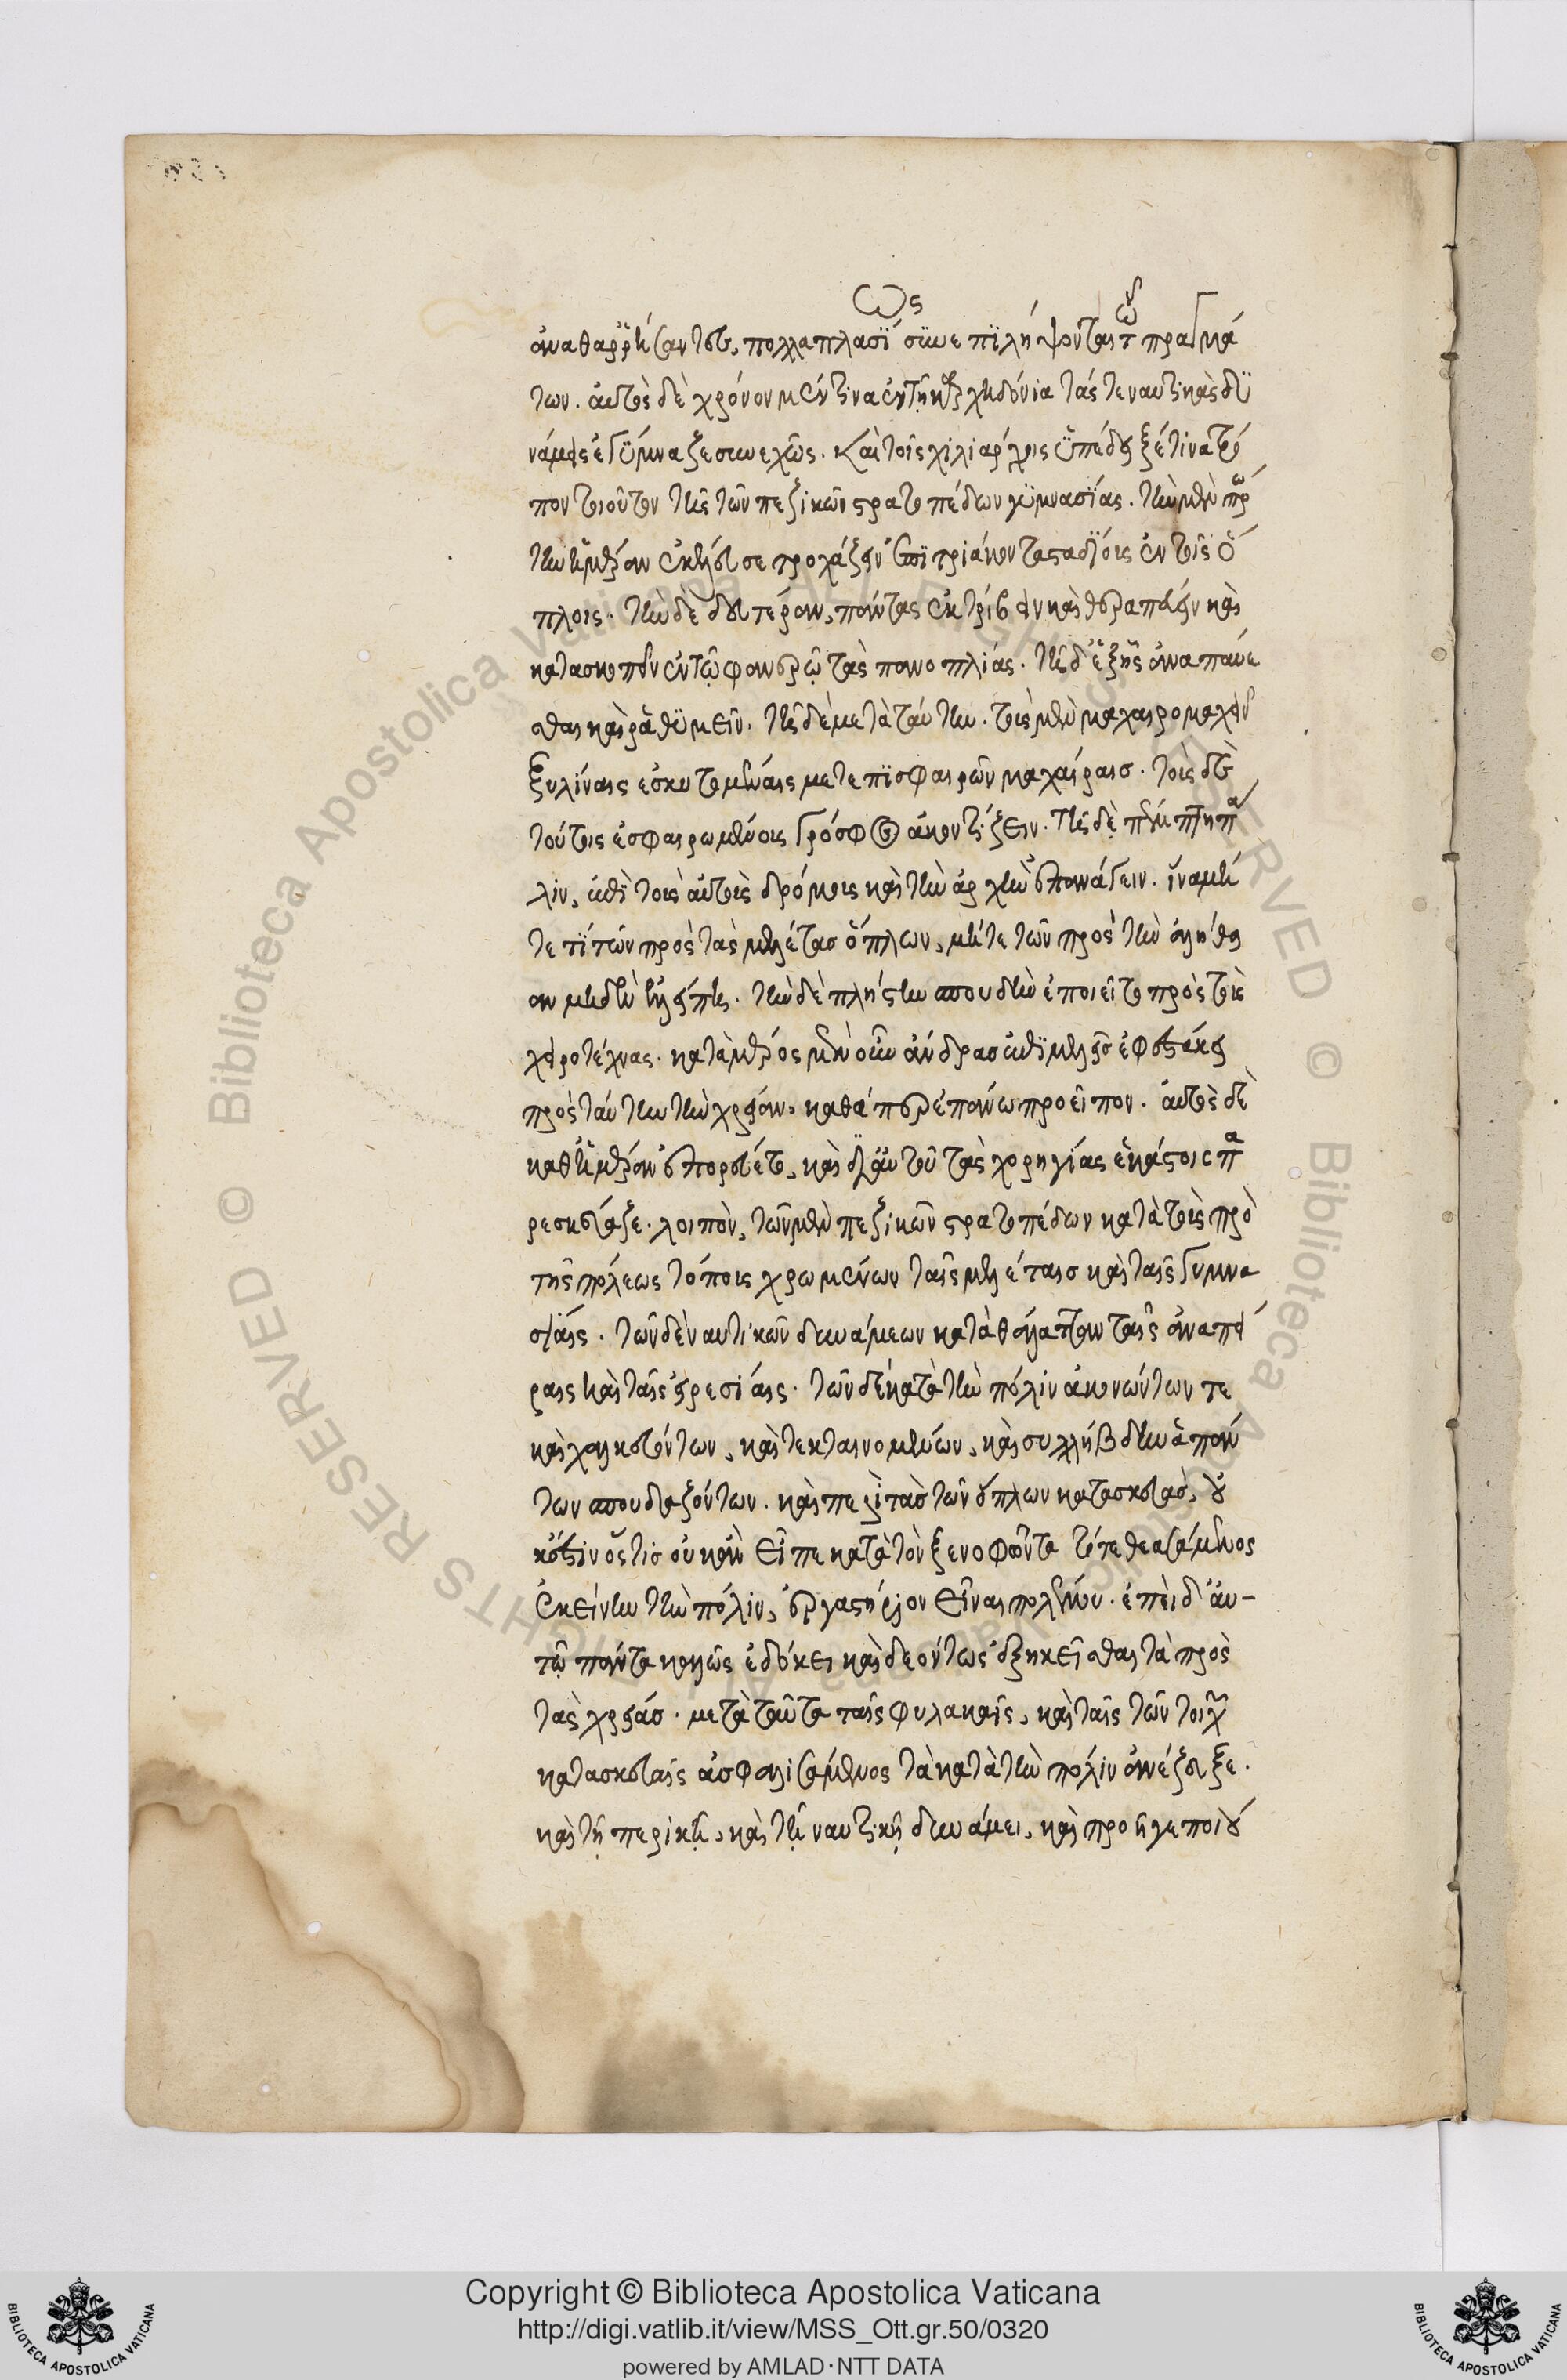 ἀναθαρρήσαντες, πολλαπλασίως συνεπιλήψονται τῶν πραγμά
των. αὐτὸς δὲ χρόνον μέν τινα ἐν τῇ καρχηδόνια τάς τε ναυτικὰς δυ
νάμεις ἐγύμναζε συνεχῶς. καὶ τοῖς χιλιάρχοις ὑπέδειξέ τινα τρό
πον τοιοῦτον τῆς τῶν πεζικῶν στρατοπέδων γυμνασίας. τὴν μὲν πρώ
την ἡμέραν ἐκέλευσε τροχάζειν ἐπὶ τριάκοντα σταδίοις ἐν τοῖς ὅ
πλοις. τὴν δὲ δευτέραν, πάντας ἐκτρίβειν καὶ θεραπεύειν καὶ
κατασκοπεῖν ἐν τῷ φανερῷ τὰς πανοπλίας. τῇ δ' ἑξῆς ἀναπαύε
σθαι καὶ ῥαθυμεῖν. τῇ δὲ μετὰ ταύτην. τοὺς μὲν μαχαιρομαχεῖν
ξυλίναις ἐσκυτωμέναις μετ' ἐπισφαιρῶν μαχαίραις. τοὺς δὲ
τούτοις ἐσφαιρωμένοις γρόσφοις ἀκοντίζειν. τῇ δὲ πέμπτῃ πά
λιν, ἐπὶ τοὺς αὐτοὺς δρόμους καὶ τὴν ἀρχὴν ἐπανάγειν. ἵνα μή
τε τι τῶν πρὸς τὰς μελέτας ὅπλων, μήτε τῶν πρὸς τὴν ἀλήθει
αν μηδὲν ἐλλείπῃ. τὴν δὲ πλείστην σπουδὴν ἐποιεῖτο πρὸς τοὺς
χειροτέχνας. κατὰ μέρος μὲν οὖν ἄνδρας ἐπιμελεῖς ἐφεστάκει
πρὸς ταύτην τὴν χρείαν, καθάπερ ἐπάνω προεῖπον. αὐτὸς δὲ
καθ' ἡμέραν ἐπορεύετο, καὶ δι' αὐτοῦ τὰς χορηγίας ἑκάστοις πα
ρεσκεύαζε. λοιπὸν, τῶν μὲν πεζικῶν στρατοπέδων κατὰ τοὺς πρὸ
τῆς πόλεως τόπους χρωμένων ταῖς μελέταις καὶ ταῖς γυμνα
σίαις. τῶν δὲ ναυτικῶν δυνάμεων κατὰ θάλατταν ταῖς ἀναπεί
ραις καὶ ταῖς εἰρεσίαις. τῶν δὲ κατὰ τὴν πόλιν ἀκονώντων τε
καὶ χαλκευόντων, καὶ τεκταινομένων, καὶ συλλήβδην ἁπάν
των σπουδαζόντων. καὶ περὶ τὰς τῶν ὅπλων κατασκευὰς, οὐ
κ ἔστιν ὅστις οὐκ ἂν εἶπε κατὰ τὸν ξενοφῶντα τότε θεασάμενος
ἐκείνην τὴν πόλιν, ἐργαστήριον εἶναι πολέμου. ἐπεὶ δ' αὐ-
τῷ πάντα καλῶς ἐδόκει καὶ δεόντως ἐξηκεῖσθαι τὰ πρὸς
τὰς χρείας. μετὰ ταῦτα ταῖς φυλακαῖς, καὶ ταῖς τῶν τοιχῶν
κατασκευαῖς ἀσφαλισάμενος τὰ κατὰ τὴν πόλιν ἀνέζευξε.
καὶ τῇ πεζικῇ, καὶ τῇ ναυτικῇ δυνάμει, καὶ προῆγε ποιού
Copyright © Biblioteca Apostolica Vaticana
http://digi.vatlib.it/view/MSS_Ott.gr.50/0320
powered by AMLAD·NTT DATA